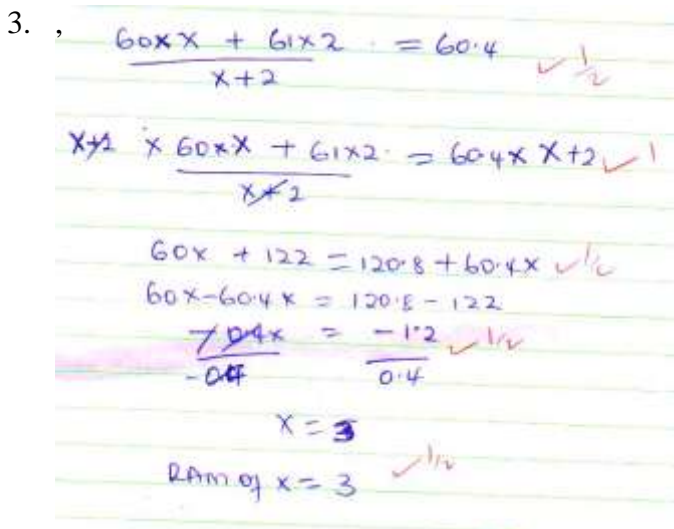 3. ,
60xx + 61x2 = 60.4 ✓ 1/2
x+2
x+2 x 60xx + 61x2 = 60.4x x+2 ✓ 1
x+2
60x + 122 = 120.8 + 60.4x ✓ 1/2
60x-60.4x = 120.8 - 122
-0.4x = -1.2 ✓ 1/2
-0.4 0.4
x = 3
RAM of x = 3 ✓ 1/2